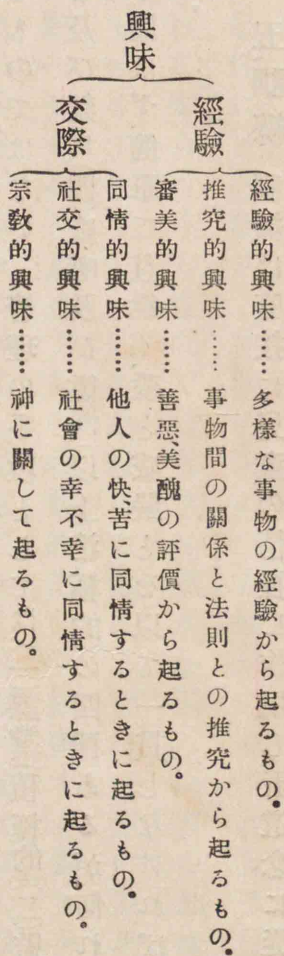 興味
經驗
經驗的興味……多樣な事物の經驗から起るもの。
推究的興味……事物間の關係と法則との推究から起るもの。
審美的興味……善惡、美醜の評價から起るもの。
交際
同情的興味……他人の快、苦に同情するときに起るもの。
社交的興味……社會の幸不幸に同情するときに起るもの。
宗敎的興味……神に關して起るもの。